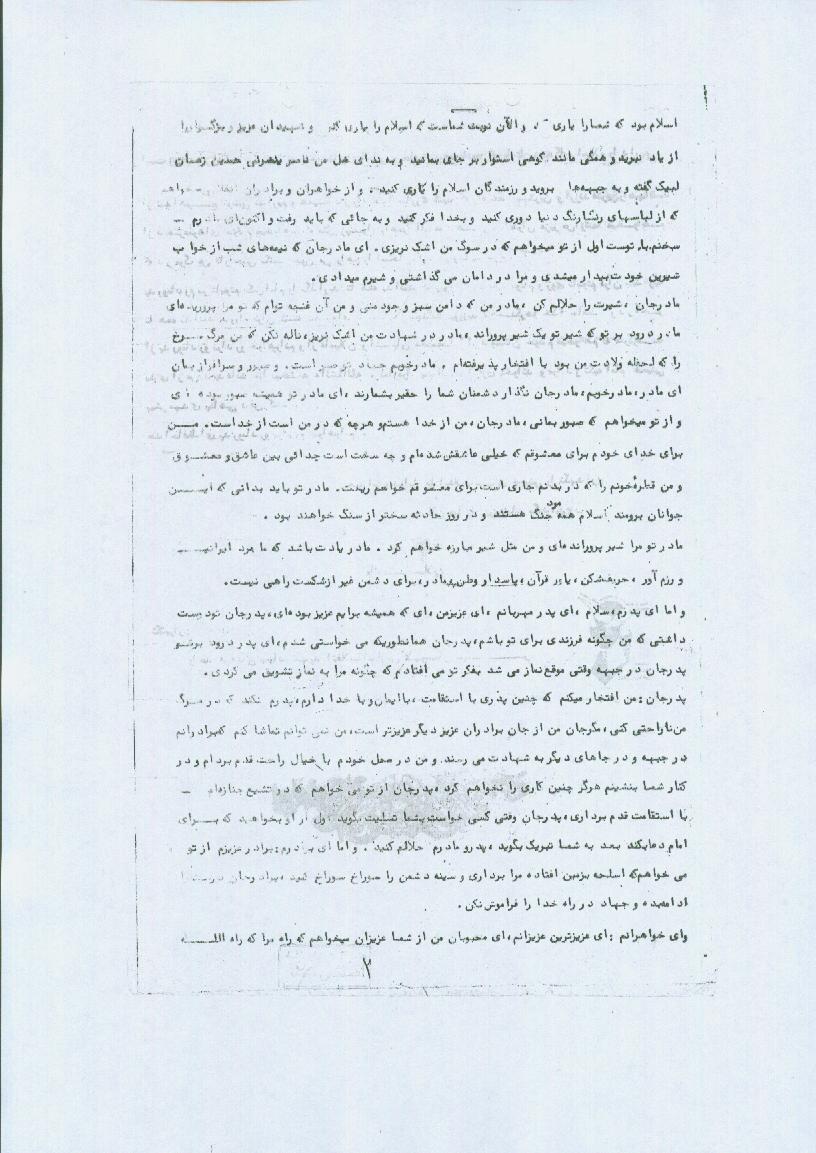 اسلام بود که شمارا یاری و الآن نوبت شماست که اسلام را یاری کنید و شهیدان عزیز و بزرگوار را
از یاد نبرید و همگی مانند گوهی استوار بر جای بمانید و به ندای هل من ناصر ینصرنی حسین زمان
لبیک گفته و به جبهه‌ها بروید و رزمندگان اسلام را یاری کنید ، و از خواهران و برادران میخواهم
که از لباسهای رنگارنگ دنیا دوری کنید و بخدا فکر کنید و به جائی که باید رفت و اکنون‌ای مادرم
سخنم با توست اول از تو میخواهم که در سوگ من اشک نریزی . ای مادرجان که نیمه‌های شب از خواب
شیرین خودت بیدار میشدی و مرا در دامان می گذاشتی و شیرم میدادی .
مادرجان ، شیرت را حلالم کن ، مادر من که دامن سبز وجود منی و من آن غنچه توام که تو مرا پرورید‌ه‌ای
مادر درود بر تو که شیر تو یک شیر پروراند ، مادر در شهادت من اشک نریز ، ناله نکن که من مرگ سرخ
را که لحظه ولادت من بود با افتخار پذیرفته‌ام . مادر خوبم و صبور و سرافراز بمان
ای مادر ، مادر خوبم ، مادرجان نگذار دشمنان شما را حقیر بشمارند ، ای مادر تو همیشه صبور بوده ای
و از تو میخواهم که صبور بمانی ، مادرجان ، من از خدا هستم و هرچه که در من است از خداست . من
برای خدای خودم برای معشوقم که خیلی عاشقش شده‌ام و چه سخت است جدائی بین عاشق و معشوق
و من قطره‌خونم را که در بدنم جاری است برای معشوقم خواهم ریخت . مادر تو باید بدانی که این
جوانان برومند اسلام همه مرد جنگ هستند و در روز حادثه سختر از سنگ خواهند بود .
مادر تو مرا شیر پرورانده‌ای و من مثل شیر مبارزه خواهم کرد . مادر یادت باشد که ما مرد ایرانیم
و رزم آور ، حریف‌شکن ، یاور قرآن ، پاسدار وطن ، مادر ، برای دشمن غیر از شکست راهی نیست .
و اما ای پدرم ، سلام ، ای پدر مهربانم ، ای عزیزمن ، ای که همیشه برایم عزیز بوده‌ای ، پدرجان تو دوست
داشتی که من چگونه فرزندی برای تو باشم ، پدرجان همانطوریکه می خواستی شدم ، ای پدر درود بر تو
پدرجان در جبهه وقتی موقع نماز می شد بفکر تو می افتادم که چگونه مرا به نماز تشویق می کردی .
پدرجان : من افتخار میکنم که چنین پدری با استقامت ، با ایمان و با خدا دارم ، پدرم نکند که در مرگ
من ناراحتی کنی ، مگرجان من از جان برادران عزیز دیگر عزیزتر است ، من نمی توانم تماشا کنم که‌برادرانم
در جبهه و در جاهای دیگر به شهادت می رسند و من در محل خودم با خیال راحت قدم بردارم و در
کنار شما بنشینم هرگز چنین کاری را نخواهم کرد ، پدرجان از تو می خواهم که در تشییع جنازه‌ام
با استقامت قدم برداری ، پدرجان وقتی کسی خواست بشما تسلیت بگوید اول از او بخواهید که برای
امام دعا بکند بعد به شما تبریک بگوید ، پدر و مادرم حلالم کنید . و اما ای برادرم : برادر عزیزم از تو
می خواهم که اسلحه بزمین افتاده مرا برداری و سینه دشمن را سوراخ سوراخ کنی ، برادرجان درست را
ادامه‌بده و جهاد در راه خدا را فراموش نکن .
وای خواهرانم : ای عزیزترین عزیزانم ، ای محبوبان من از شما عزیزان میخواهم که راه مرا که راه الله
۲